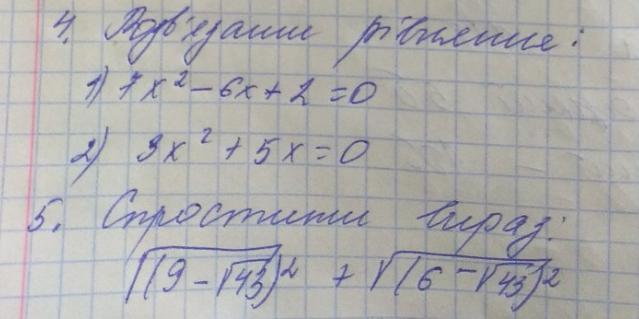 4. Розв'язати рівняння:
1) 7x² - 6x + 2 = 0
2) 3x² + 5x = 0
5. Спростити вираз:
√(9 - √43)² + √(6 - √43)²